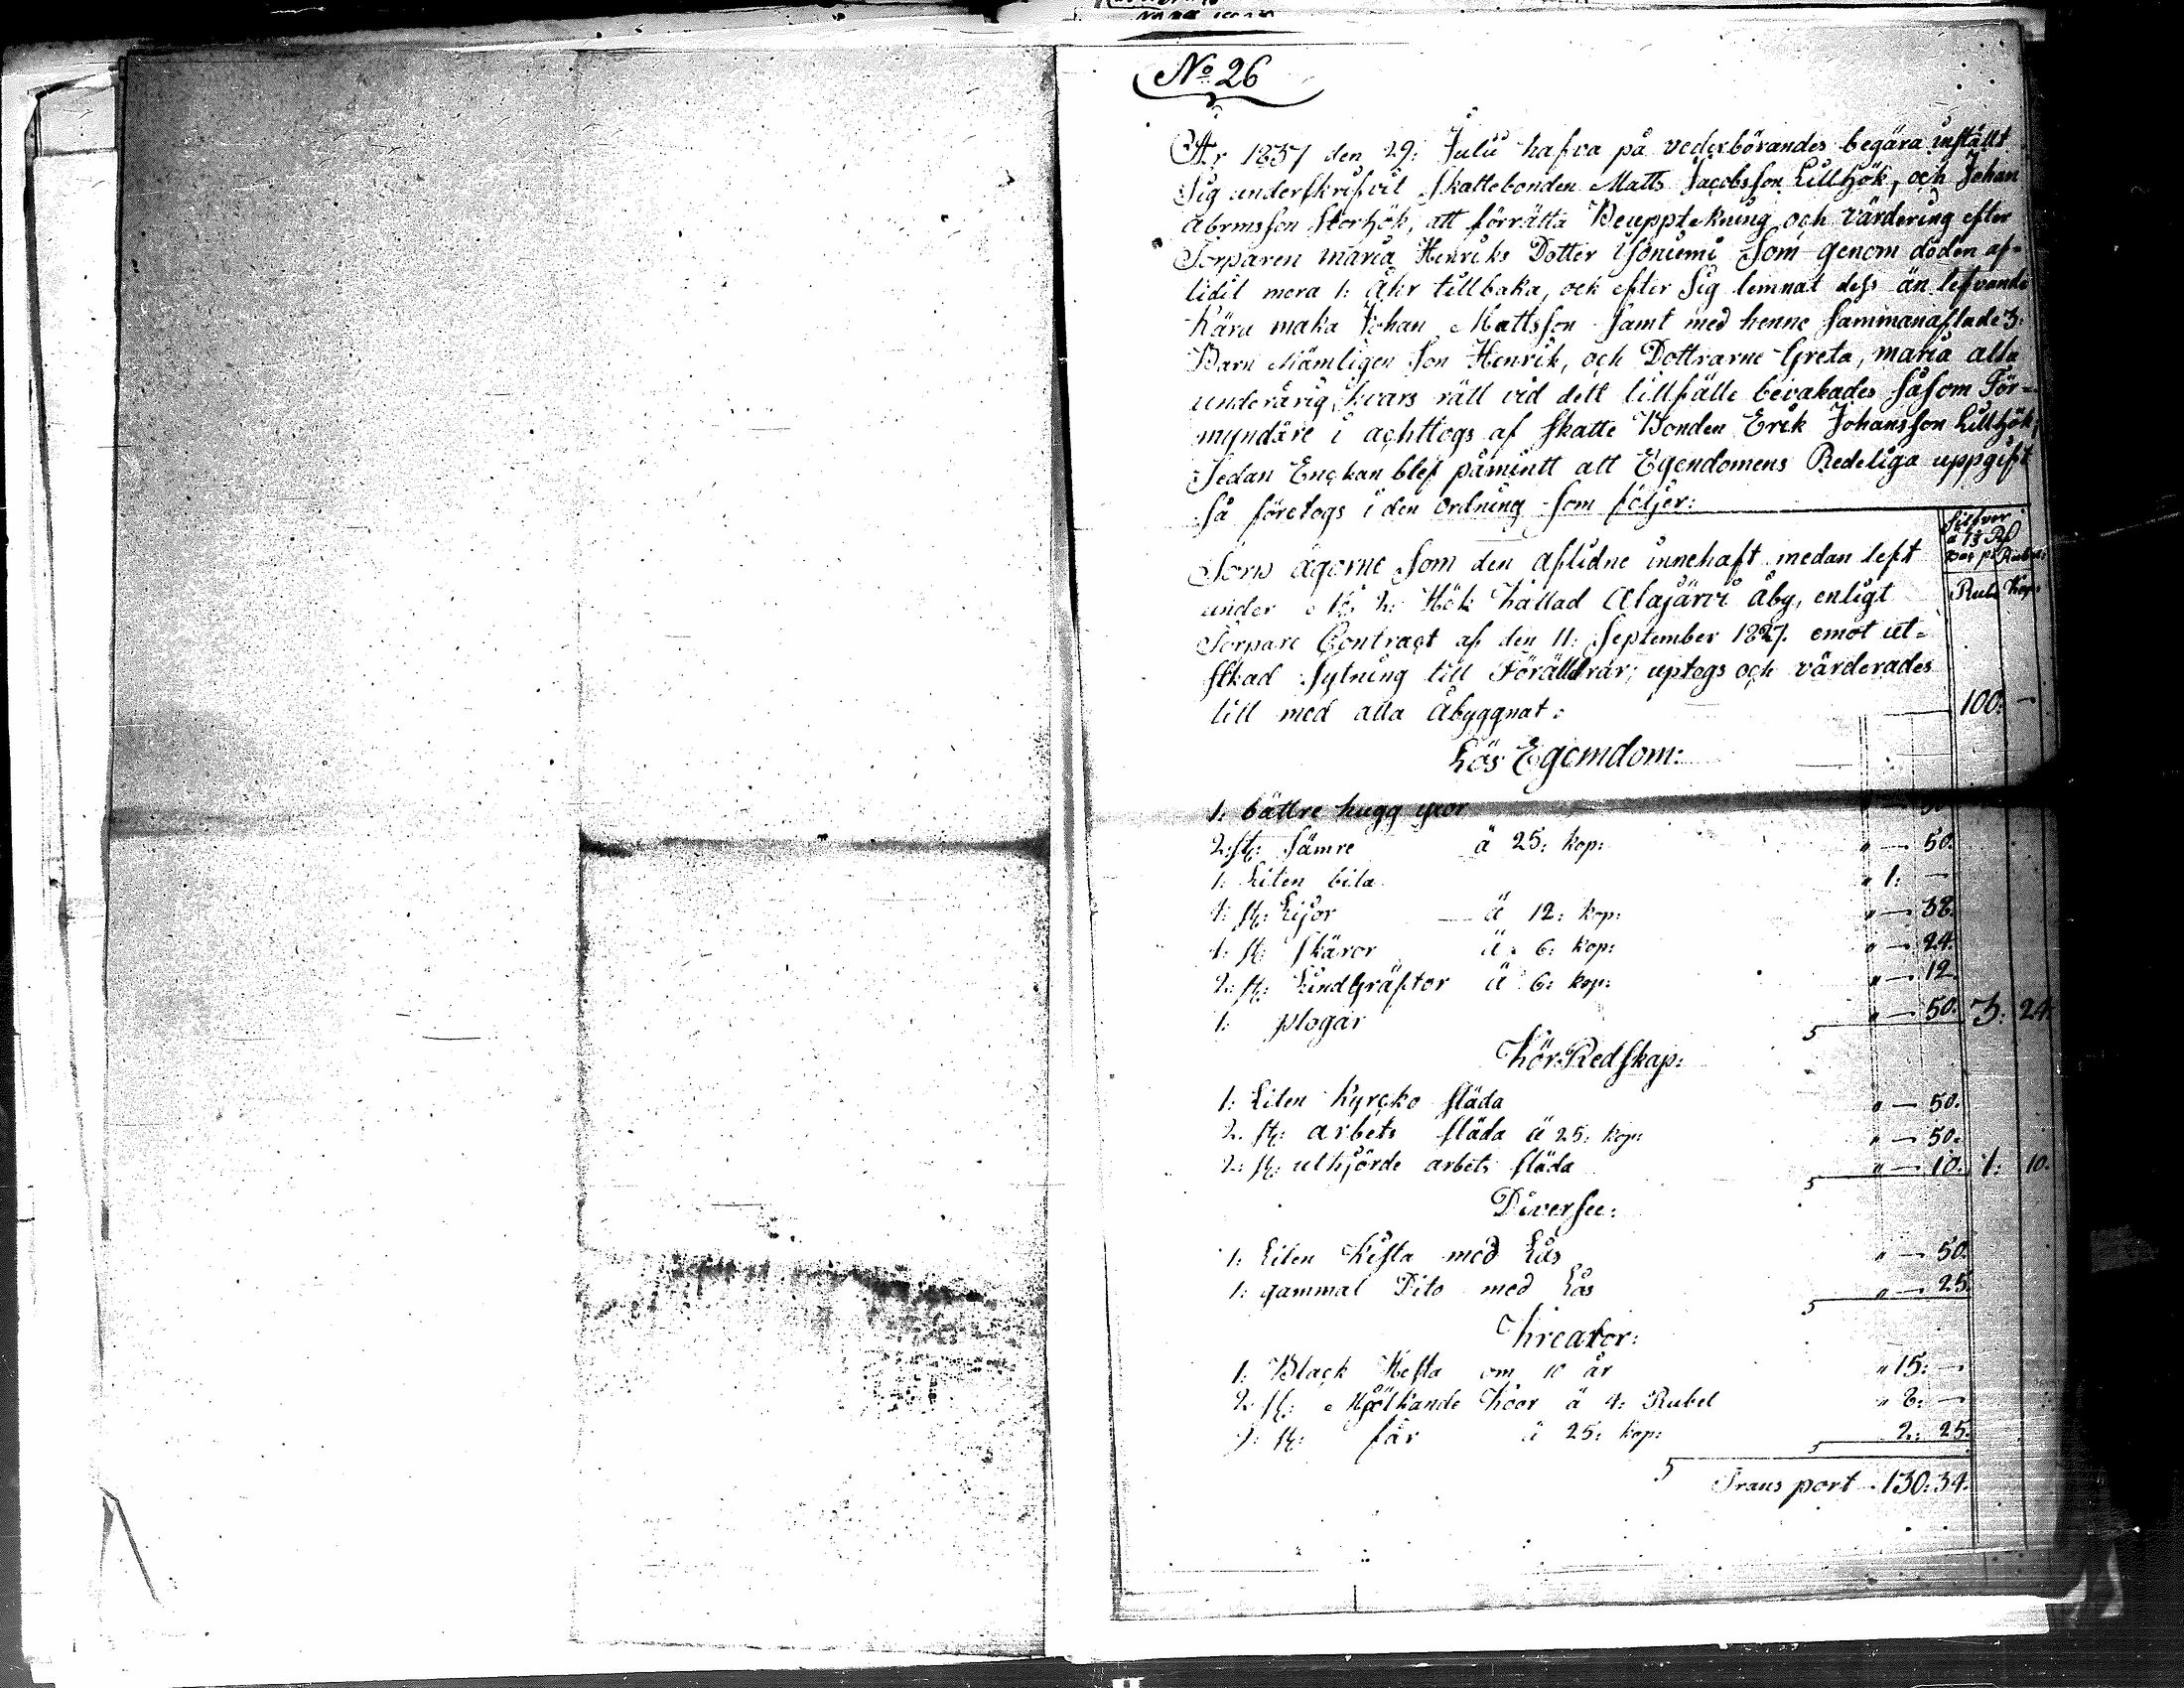 No 26
År 1837 den 29: Julii hafva på vederbörandes begära inställt
Sig underskrifvit Skattebonden Matts Jacobsson Lillhök, och Johan
Abrmsson Storhök, att förrätta Beuppteknüng och värdering efter
Torparen maria Henriks Dotter Isoniemi Som genom döden af-
lidit mera 1: Åhr tillbaka, och efter Sig lemnat dess än lefvande
Kära maka Johan Mattsson Samt med henne Sammanaflade 3:
Barn Nämligen Son Henrik, och Dottrarne Greta, maria alla
underårig, hvars rätt vid dett tillfälle bevakades Såsom För-
myndare i achttogs af Skatte Bonden Erik Johansson Lillhök,
Sedan Enckan blef påmintt att Egendomens Redeliga uppgift
Så företogs i den ordning Som följer:
Silfver
Rub Kop:
Torp ägorne Som den aflidne innehaft medan left
under No 2: Hök kallad Alajärvi åby, enligt
Torpare Contract af den 11: September 1827. emot ut-
stkad Sytning till Föräldrar; uptogs och värderades
till med alla åbyggnat: 100: —
Lös Egemdom:
1: bättre hugg yxor
2: st: Sämre à 25: kop: " — 50.
1: Liten bila " 1: —
4: st: Lijor à 12: kop: " — 38.
4: st: Skäror à 6: kop: " — 24.
2: st: Lindgräftor à 6: kop: " — 12.
1: plogar " — 50. 3: 24.
Kör Redskap:
1: Liten Kyrcko släda " — 50.
2. st: arbets släda à 25: kop: " — 50.
2: st: utkjörde arbets släda " — 10. 1: 10.
Diversee:
1: Liten Kista med Lås " — 50.
1: gammal Dito med Lås " — 25.
Kreator:
1: Black Hesta om 10 år " 15: —
2 st: Mjölkande Koor à 4: Rubel " 8: —
9: st: får à 25: kop: 2: 25.
Transport 130: 34.